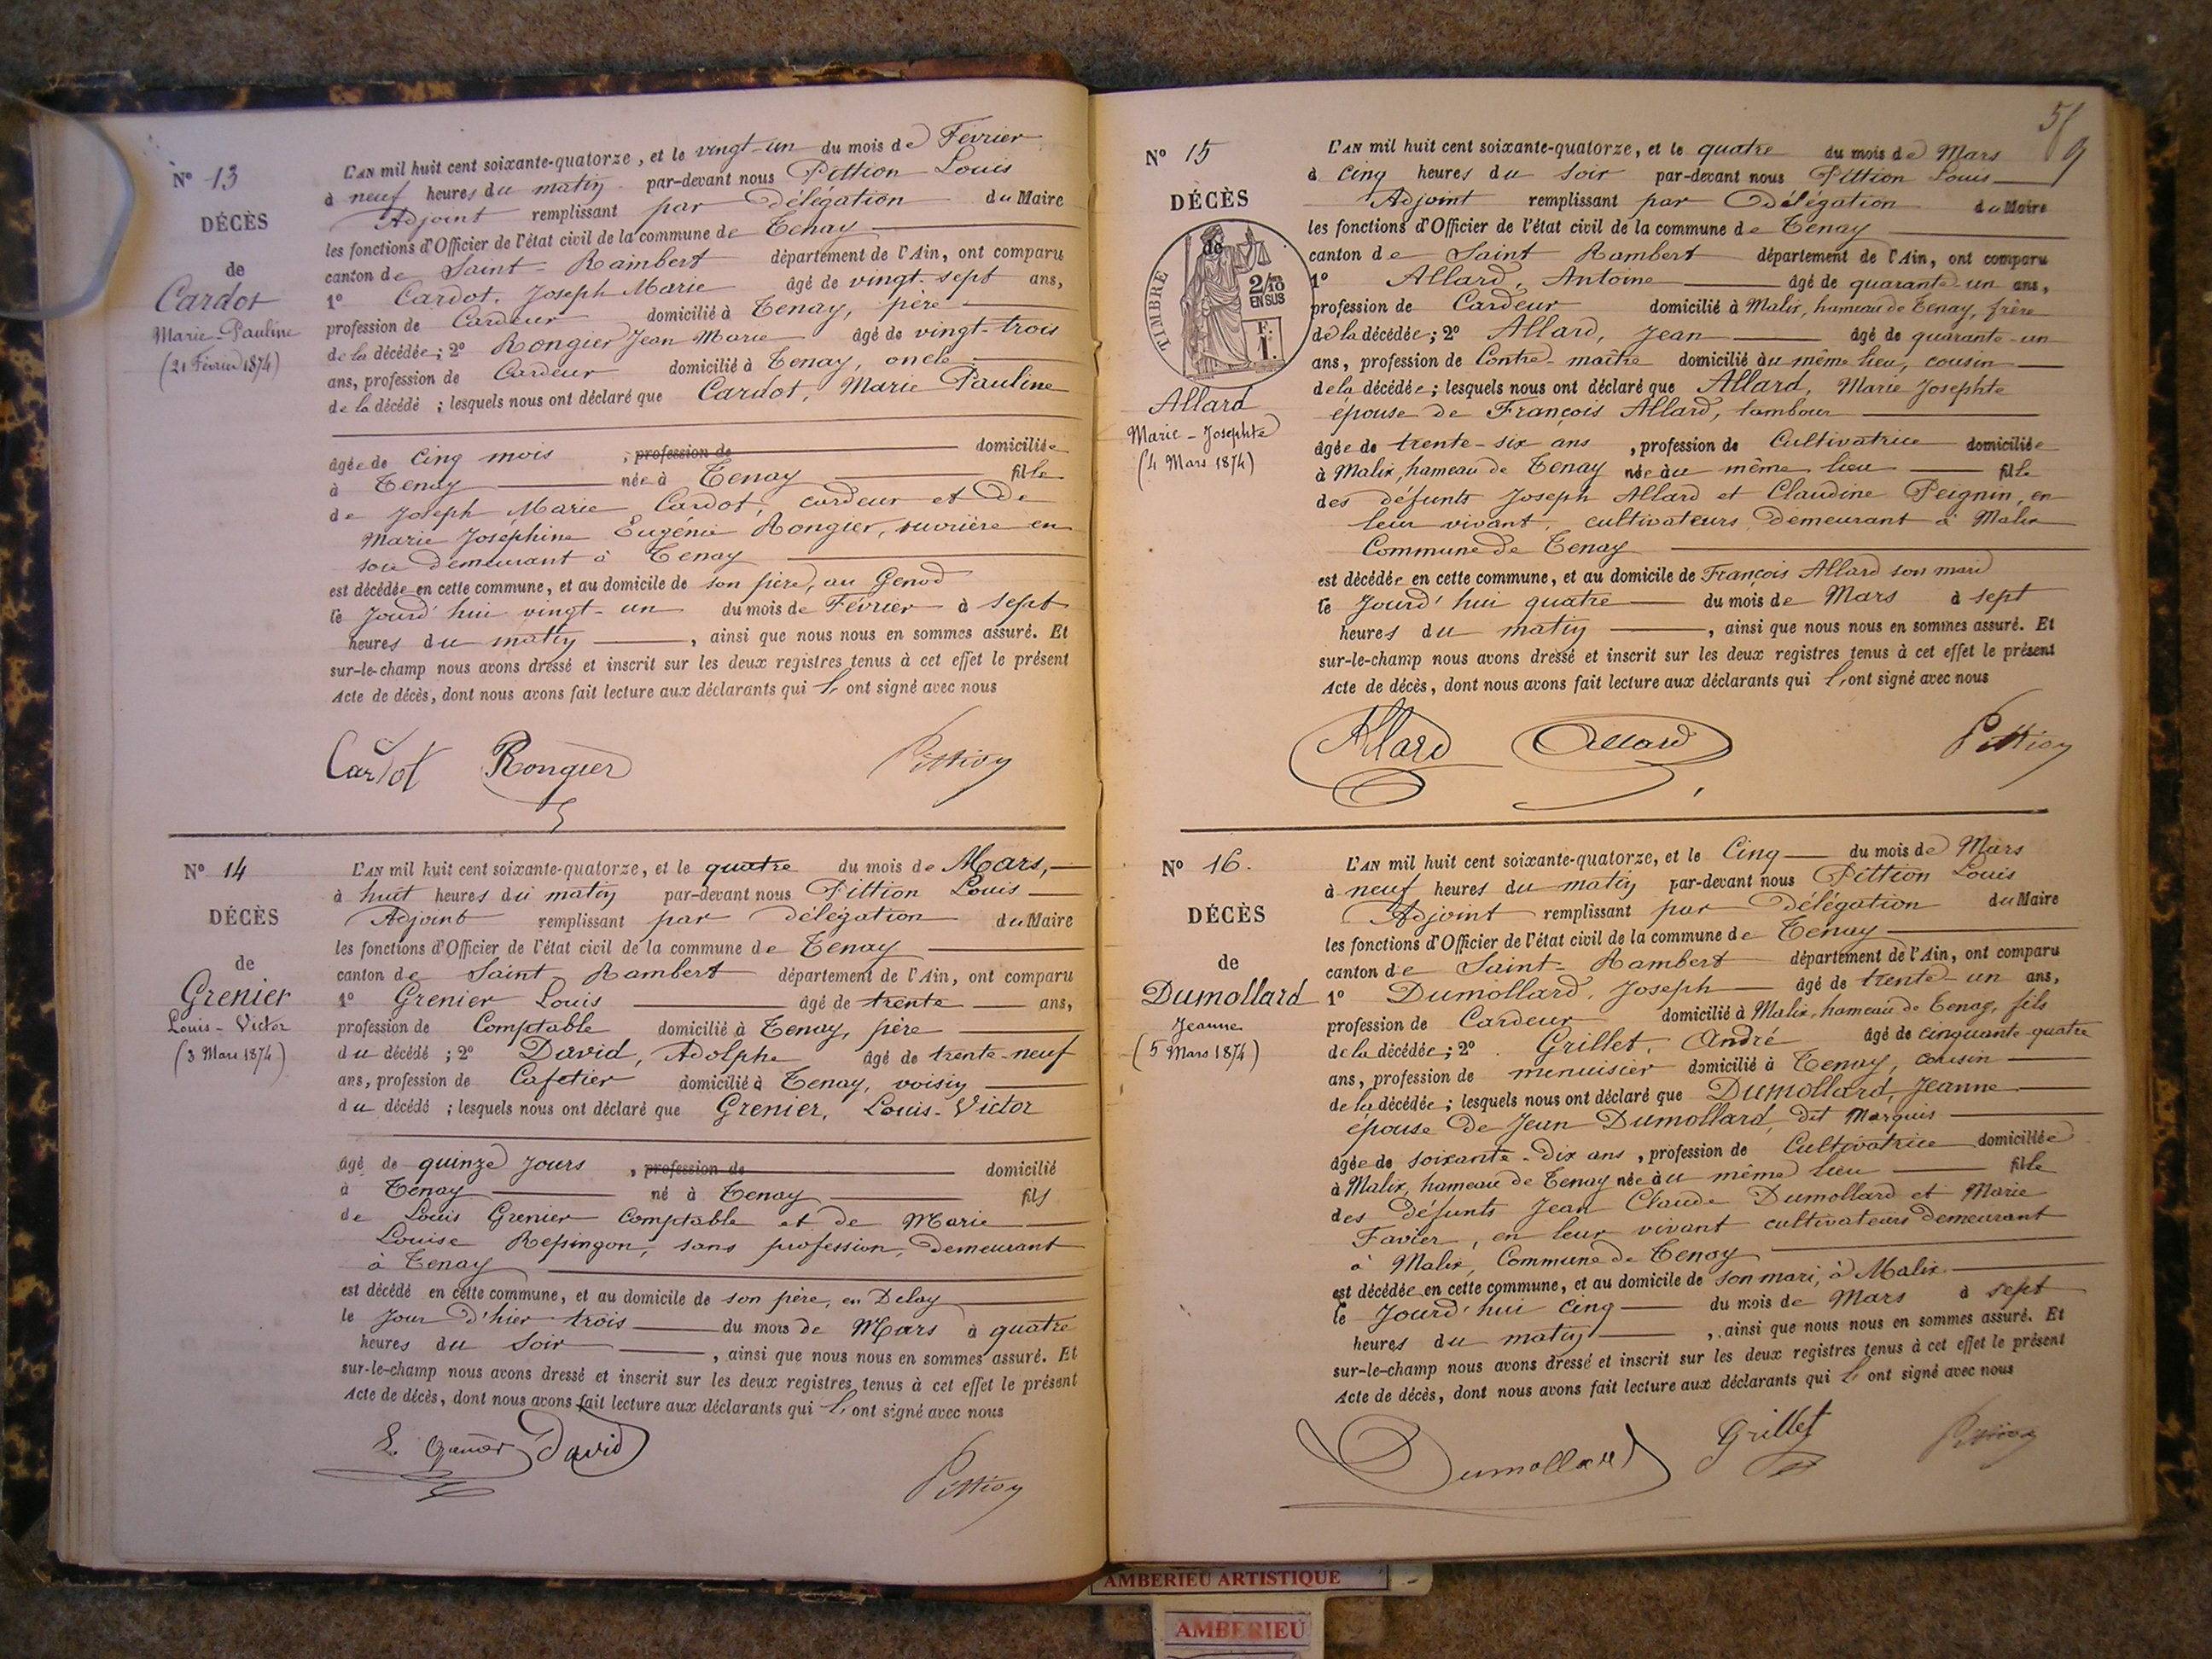 N° 13
DÉCÈS
de
Cardot
Marie-Pauline
(21 Février 1874)
L'AN mil huit cent soixante-quatorze, et le vingt-un du mois de Février
à neuf heures du matin par-devant nous Pittion Louis
Adjoint remplissant par Délégation du Maire
les fonctions d'Officier de l'état civil de la commune de Tenay
canton de Saint-Rambert département de l'Ain, ont comparu
1° Cardot, Joseph Marie âgé de vingt-sept ans,
profession de Cardeur domicilié à Tenay, père
de la décédée; 2° Rongier Jean Marie âgé de vingt-trois
ans, profession de Cardeur domicilié à Tenay, oncle
de la décédé; lesquels nous ont déclaré que Cardot, Marie Pauline
âgée de cinq mois, profession de domiciliée
à Tenay née à Tenay fille
de Joseph Marie Cardot, cardeur et de
Marie Joséphine Eugénie Rongier, ouvrière en
soie demeurant à Tenay
est décédée en cette commune, et au domicile de son père, au Genod
le Jourd'hui vingt-un du mois de Février à sept
heures du matin, ainsi que nous nous en sommes assuré. Et
sur-le-champ nous avons dressé et inscrit sur les deux registres tenus à cet effet le présent
Acte de décès, dont nous avons fait lecture aux déclarants qui l'ont signé avec nous
Cardot Rongier Pittion
N° 14
DÉCÈS
de
Grenier
Louis-Victor
(3 Mars 1874)
L'AN mil huit cent soixante-quatorze, et le quatre du mois de Mars,
à huit heures du matin par-devant nous Pittion Louis
Adjoint remplissant par délégation du Maire
les fonctions d'Officier de l'état civil de la commune de Tenay
canton de Saint Rambert département de l'Ain, ont comparu
1° Grenier Louis âgé de trente ans,
profession de Comptable domicilié à Tenay, père
du décédé; 2° David, Adolphe âgé de trente-neuf
ans, profession de Cafetier domicilié à Tenay, voisin
du décédé; lesquels nous ont déclaré que Grenier, Louis-Victor
âgé de quinze jours, profession de domicilié
à Tenay né à Tenay fils
de Louis Grenier Comptable et de Marie
Louise Repingon, sans profession, demeurant
à Tenay
est décédé en cette commune, et au domicile de son père, en Delay
le Jour d'hier trois du mois de Mars à quatre
heures du soir, ainsi que nous nous en sommes assuré. Et
sur-le-champ nous avons dressé et inscrit sur les deux registres tenus à cet effet le présent
Acte de décès, dont nous avons fait lecture aux déclarants qui l'ont signé avec nous
L. Grenier David
Pittion
5/9
N° 15
DÉCÈS
de
TIMBRE
2/10
EN SUS
F.
1.
Allard
Marie-Josephte
(4 Mars 1874)
L'AN mil huit cent soixante-quatorze, et le quatre du mois de Mars
à cinq heures du soir par-devant nous Pittion Louis
Adjoint remplissant par Délégation du Maire
les fonctions d'Officier de l'état civil de la commune de Tenay
canton de Saint Rambert département de l'Ain, ont comparu
1° Allard, Antoine âgé de quarante-un ans,
profession de Cardeur domicilié à Malix, hameau de Tenay, frère
de la décédée; 2° Allard, Jean âgé de quarante-un
ans, profession de Contre-maître domicilié au même lieu, cousin
de la décédée; lesquels nous ont déclaré que Allard, Marie Josephte
épouse de François Allard, tambour
âgée de trente-six ans, profession de Cultivatrice domiciliée
à Malix, hameau de Tenay née au même lieu fille
des défunts Joseph Allard et Claudine Peignin, en
leur vivant, cultivateurs demeurant à Malix
Commune de Tenay
est décédée en cette commune, et au domicile de François Allard son mari
le Jourd'hui quatre du mois de Mars à sept
heures du matin, ainsi que nous nous en sommes assuré. Et
sur-le-champ nous avons dressé et inscrit sur les deux registres tenus à cet effet le présent
Acte de décès, dont nous avons fait lecture aux déclarants qui l'ont signé avec nous
Allard Allard Pittion
N° 16.
DÉCÈS
de
Dumollard
Jeanne
(5 Mars 1874)
L'AN mil huit cent soixante-quatorze, et le Cinq du mois de Mars
à neuf heures du matin par-devant nous Pittion Louis
Adjoint remplissant par Délégation du Maire
les fonctions d'Officier de l'état civil de la commune de Tenay
canton de Saint-Rambert département de l'Ain, ont comparu
1° Dumollard, Joseph âgé de trente-un ans,
profession de Cardeur domicilié à Malix, hameau de Tenay, fils
de la décédée; 2° Grillet, André âgé de cinquante-quatre
ans, profession de menuisier domicilié à Tenay, cousin
de la décédée; lesquels nous ont déclaré que Dumollard, Jeanne
épouse de Jean Dumollard, dit Marquis
âgée de soixante-dix ans, profession de Cultivatrice domiciliée
à Malix, hameau de Tenay née au même lieu fille
des défunts Jean Claude Dumollard et Marie
Favier, en leur vivant cultivateurs demeurant
à Malix, Commune de Tenay
est décédée en cette commune, et au domicile de son mari, à Malix
le Jourd'hui cinq du mois de Mars à sept
heures du matin, ainsi que nous nous en sommes assuré. Et
sur-le-champ nous avons dressé et inscrit sur les deux registres tenus à cet effet le présent
Acte de décès, dont nous avons fait lecture aux déclarants qui l'ont signé avec nous
Dumollard Grillet Pittion
AMBERIEU ARTISTIQUE
AMBERIEU